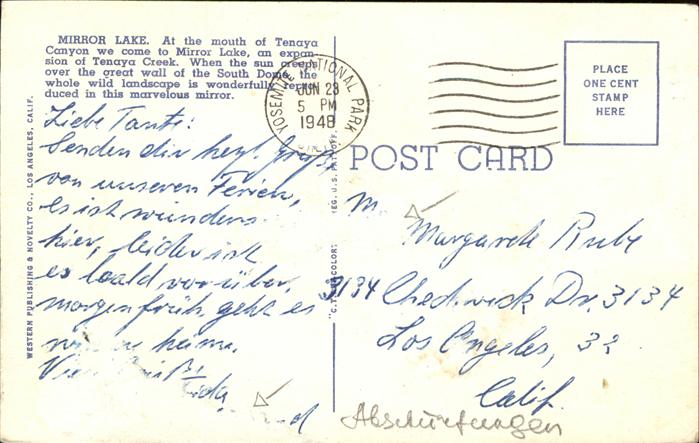 MIRROR LAKE. At the mouth of Tenaya
Canyon we come to Mirror Lake, an expan-
sion of Tenaya Creek. When the sun creeps
over the great wall of the South Dome, the
whole wild landscape is wonderfully repro-
duced in this marvelous mirror.
Liebe Tante:
Senden dir herzl. Grüße
von unseren Ferien,
es ist wunders
hier, leider ist
es bald vorüber,
morgen früh geht es
heim.
WESTERN PUBLISHING & NOVELTY CO., LOS ANGELES, CALIF.
REG. U.S. PAT. OFF.
YOSEMITE NATIONAL PARK
JUN 28
5 PM
1948
PLACE
ONE CENT
STAMP
HERE
POST CARD
M.
Margarete Ruby
3134 Chadwick Dr. 3134
Los Angeles, 32
Calif.
Abschürfungen